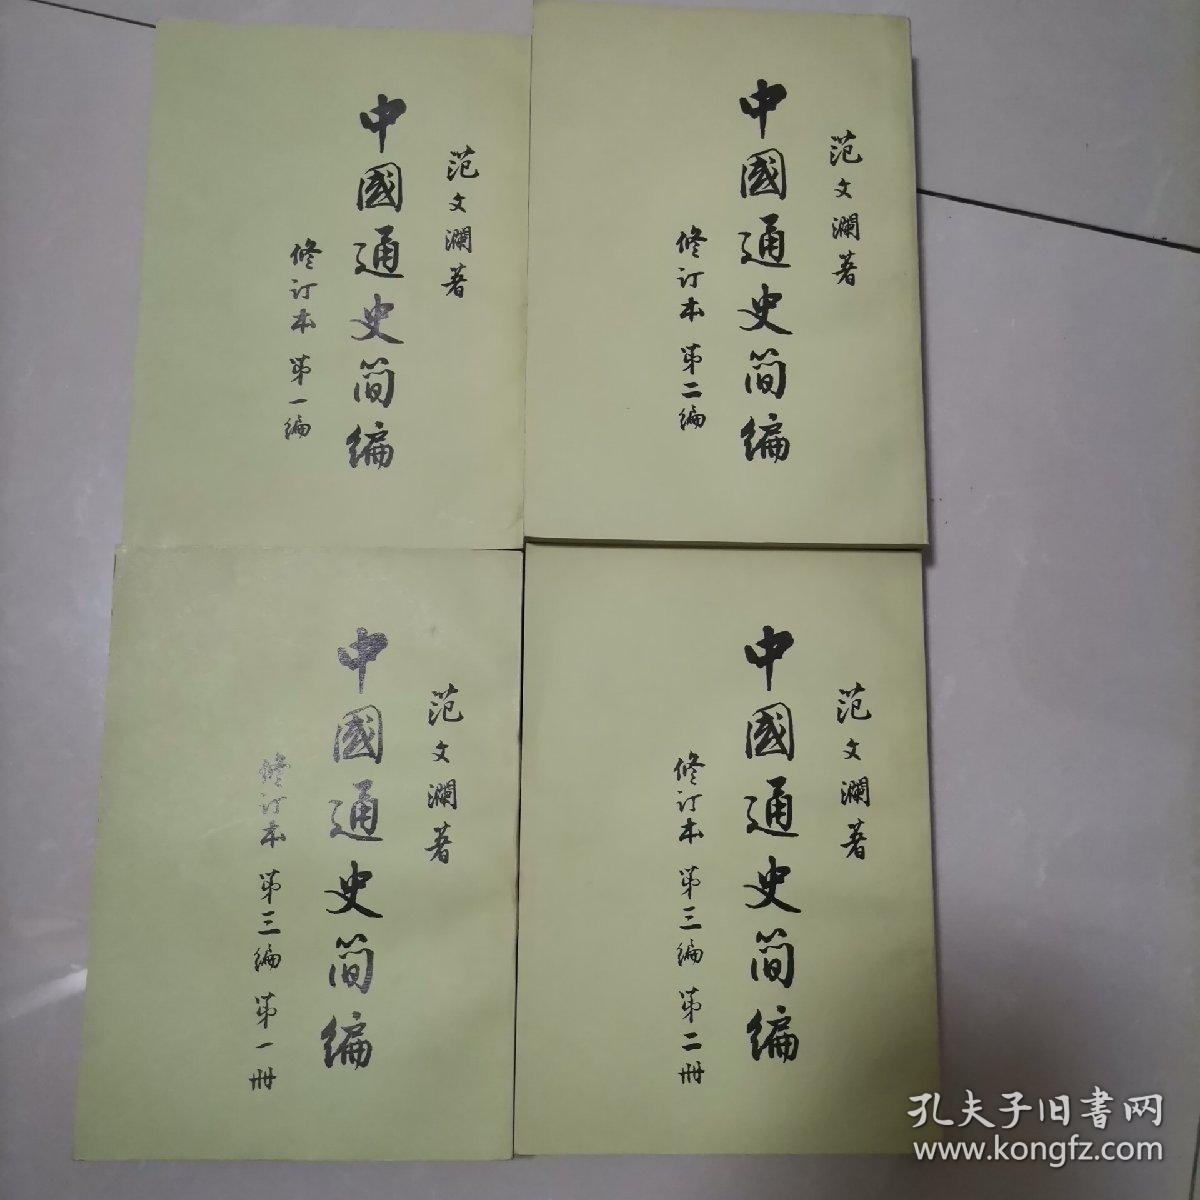 范文瀾著
中國通史简编
修订本 第一编
范文瀾著
中國通史简编
修订本 第二编
范文瀾著
中國通史简编
修订本 第三编 第一册
范文瀾著
中國通史简编
修订本 第三编 第二册
孔夫子旧書网
www.kongfz.com